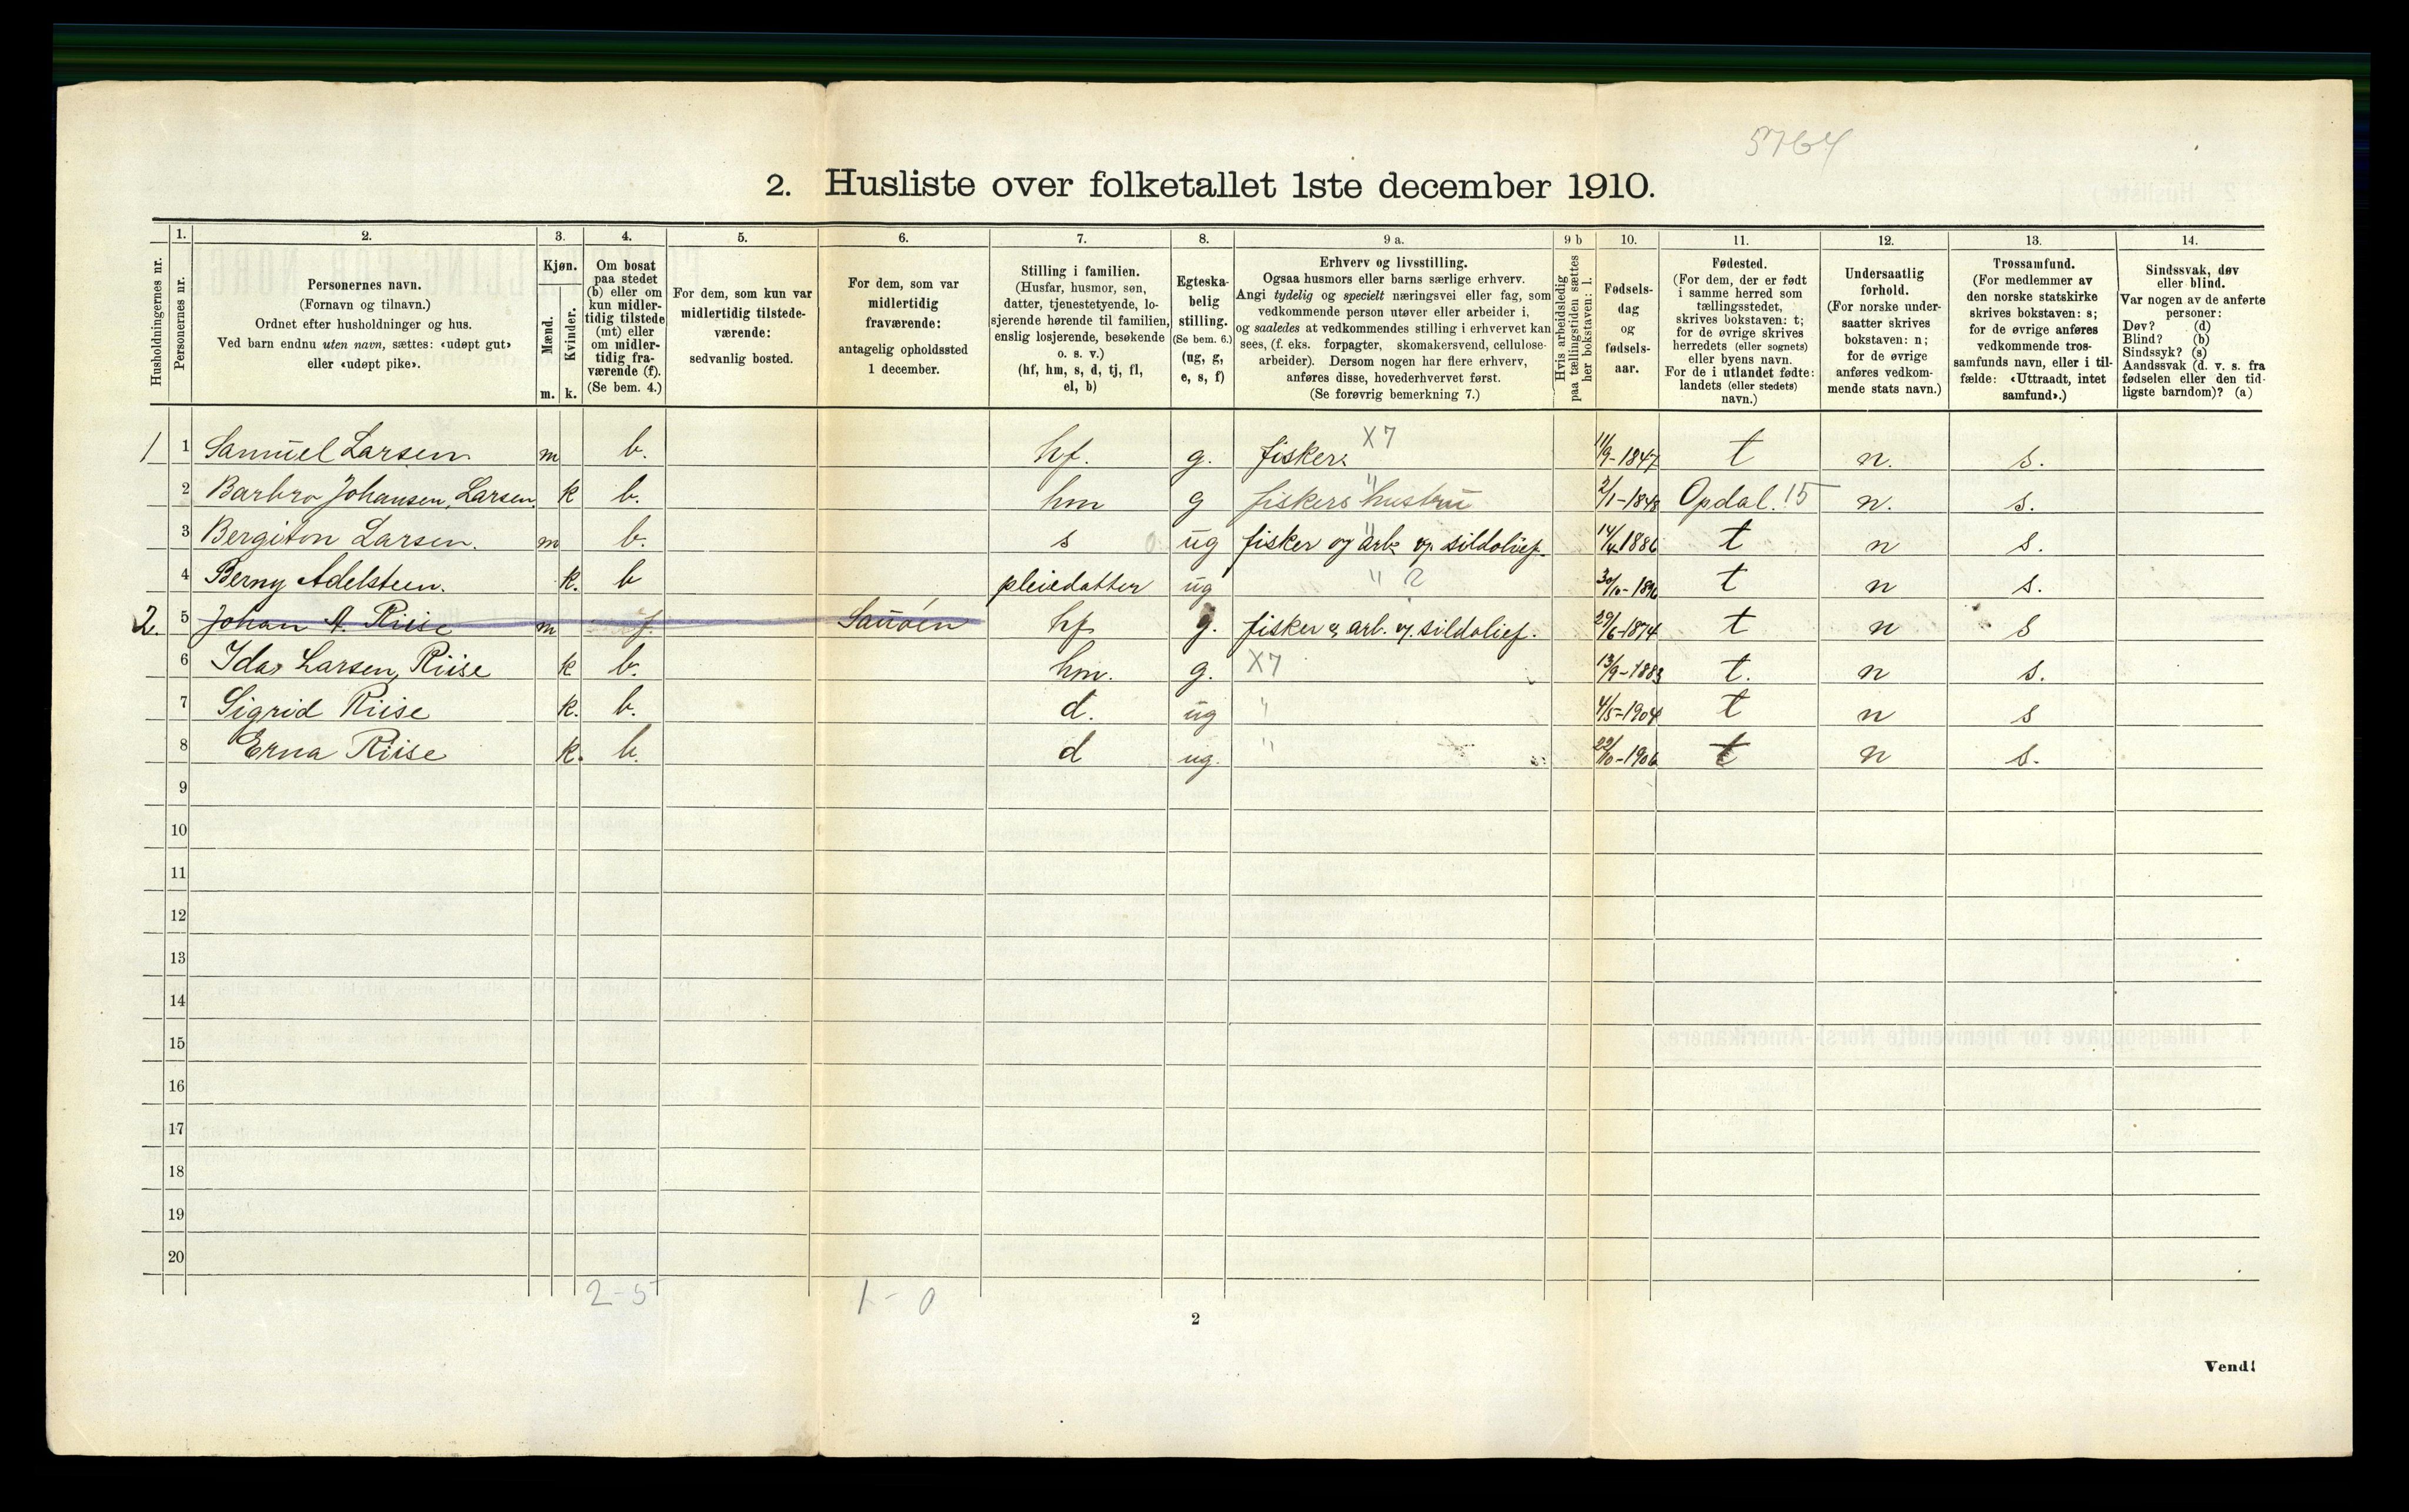 5764
2. Husliste over folketallet 1ste december 1910.
Husholdningernes nr.
1.
Personernes nr.
2.
Personernes navn.
(Fornavn og tilnavn.)
Ordnet efter husholdninger og hus.
Ved barn endnu uten navn, sættes: «udøpt gut»
eller «udøpt pike».
3.
Kjøn.
Mænd.
Kvinder.
m. k.
4.
Om bosat
paa stedet
(b) eller om
kun midler-
tidig tilstede
(mt) eller
om midler-
tidig fra-
værende (f).
(Se bem. 4.)
5.
For dem, som kun var
midlertidig tilstede-
værende:
sedvanlig bosted.
6.
For dem, som var
midlertidig
fraværende:
antagelig opholdssted
1 december.
7.
Stilling i familien.
(Husfar, husmor, søn,
datter, tjenestetyende, lo-
sjerende hørende til familien,
enslig losjerende, besøkende
o. s. v.)
(hf, hm, s, d, tj, fl,
el, b)
8.
Egteska-
belig
stilling.
(Se bem. 6.)
(ug, g,
e, s, f)
9 a.
Erhverv og livsstilling.
Ogsaa husmors eller barns særlige erhverv.
Angi tydelig og specielt næringsvei eller fag, som
vedkommende person utøver eller arbeider i,
og saaledes at vedkommendes stilling i erhvervet kan
sees, (f. eks. forpagter, skomakersvend, cellulose-
arbeider). Dersom nogen har flere erhverv,
anføres disse, hovederhvervet først.
(Se forøvrig bemerkning 7.)
9 b
Hvis arbeidsledig
paa tællingstiden sættes
her bokstaven: l.
10.
Fødsels-
dag
og
fødsels-
aar.
11.
Fødested.
(For dem, der er født
i samme herred som
tællingsstedet,
skrives bokstaven: t;
for de øvrige skrives
herredets (eller sognets)
eller byens navn.
For de i utlandet fødte:
landets (eller stedets)
navn.)
12.
Undersaatlig
forhold.
(For norske under-
saatter skrives
bokstaven: n;
for de øvrige
anføres vedkom-
mende stats navn.)
13.
Trossamfund.
(For medlemmer av
den norske statskirke
skrives bokstaven: s;
for de øvrige anføres
vedkommende tros-
samfunds navn, eller i til-
fælde: «Uttraadt, intet
samfund».)
14.
Sindssvak, døv
eller blind.
Var nogen av de anførte
personer:
Døv? (d)
Blind? (b)
Sindssyk? (s)
Aandssvak (d. v. s. fra
fødselen eller den tid-
ligste barndom)? (a)
1 1 Samuel Larsen m b. hf. g. fisker. X7 11/9-1847 t n. s.
2 Barbro Johansen, Larsen. k b. hm g fiskers hustru " 2/1-1848 Opdal. 15 n. s.
3 Bergiton Larsen. m b. s 0 ug fisker og arb. v. sildoljef. " 14/4 1886 t n s.
4 Berny Adelsteen. k. b pleiedatter ug " 2 30/10-1896 t n s.
2. 5 Johan A. Riise m f. Sauöen hf g. fisker & arb. v. sildoljef. 29/6-1874 t n s
6 Ida Larsen, Riise k b. hm. g. X7 13/9-1883 t. n s.
7 Sigrid Riise k. b. d. ug " 4/5-1904 t n s
8 Erna Riise k. b. d ug. " 22/10-1906 t n s.
9
10
11
12
13
14
15
16
17
18
19
20
2-5 1-0
2
Vend!